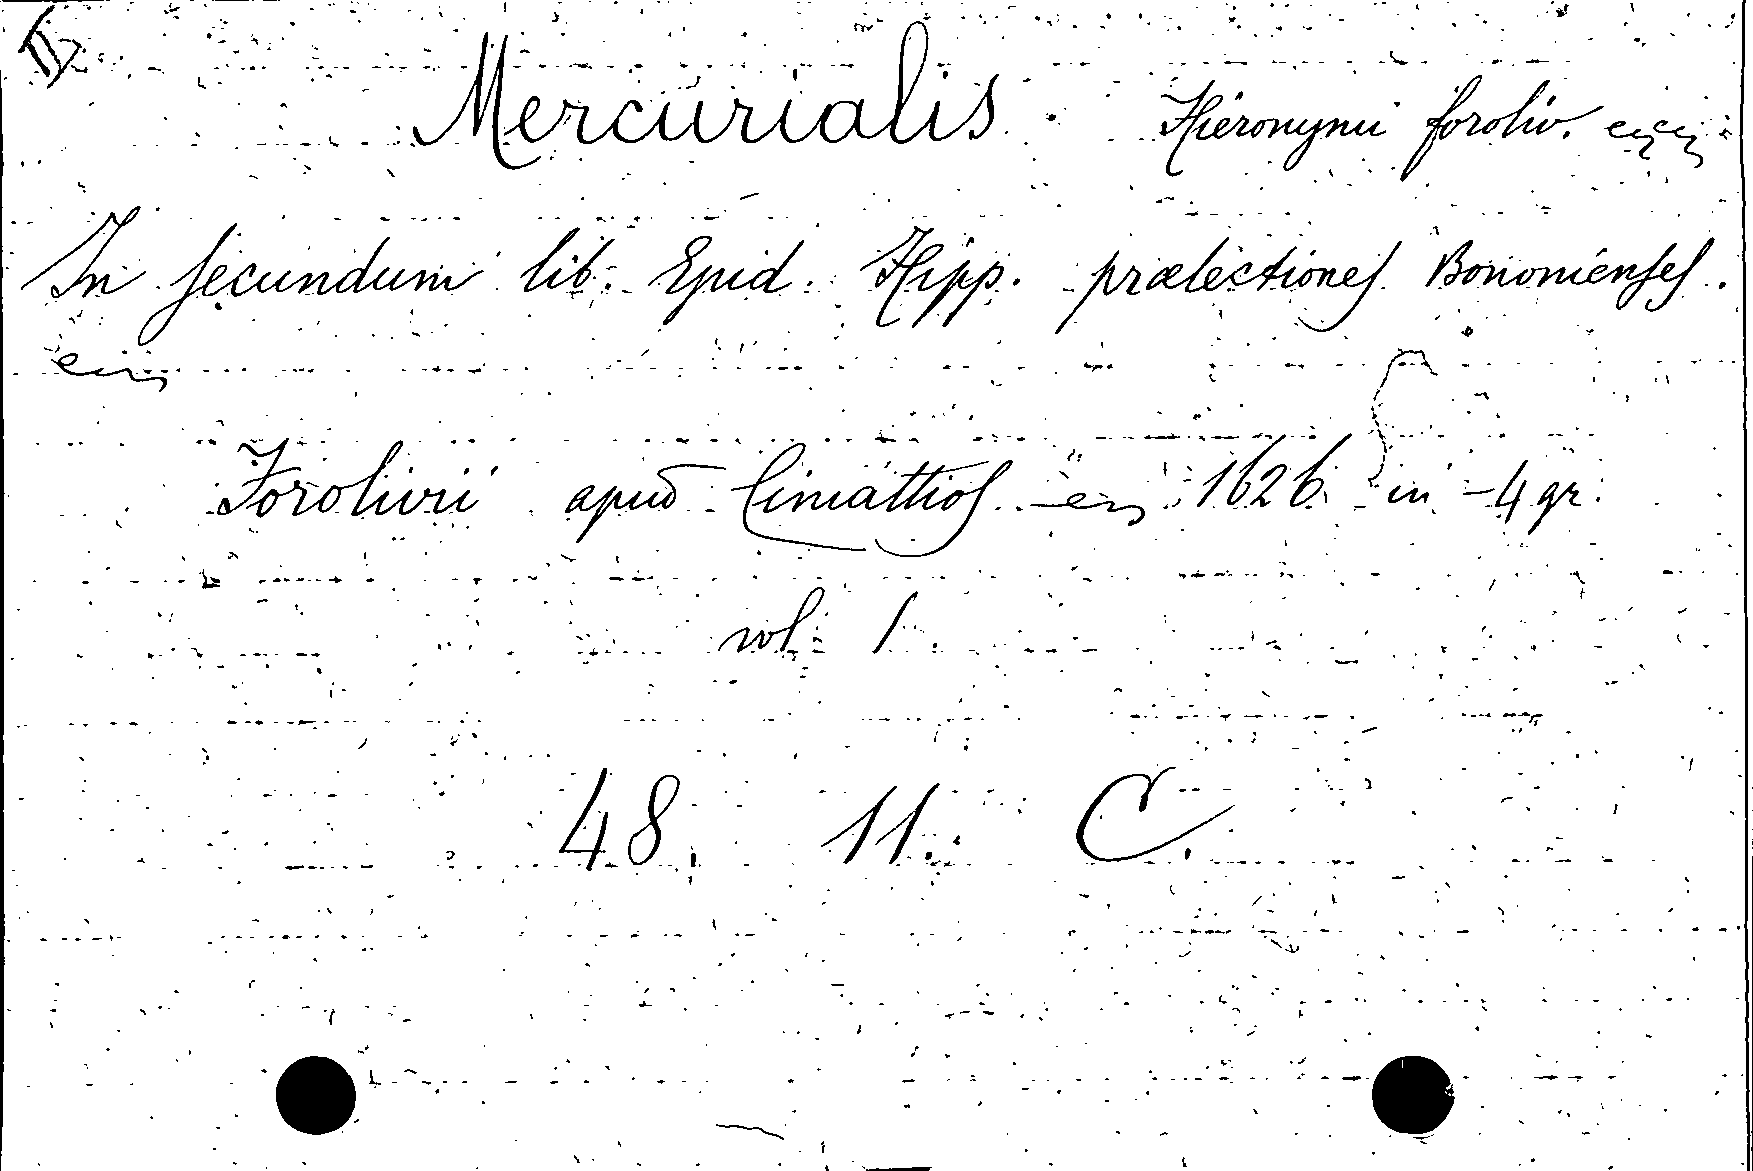 Mercurialis Hieronymi foroliv.
In secundum lib. Epid. Hipp. prælectiones Bononienses.
Forolivii apud Cimattios 1626 in-4 gr.
vol. 1
48. 11. C.